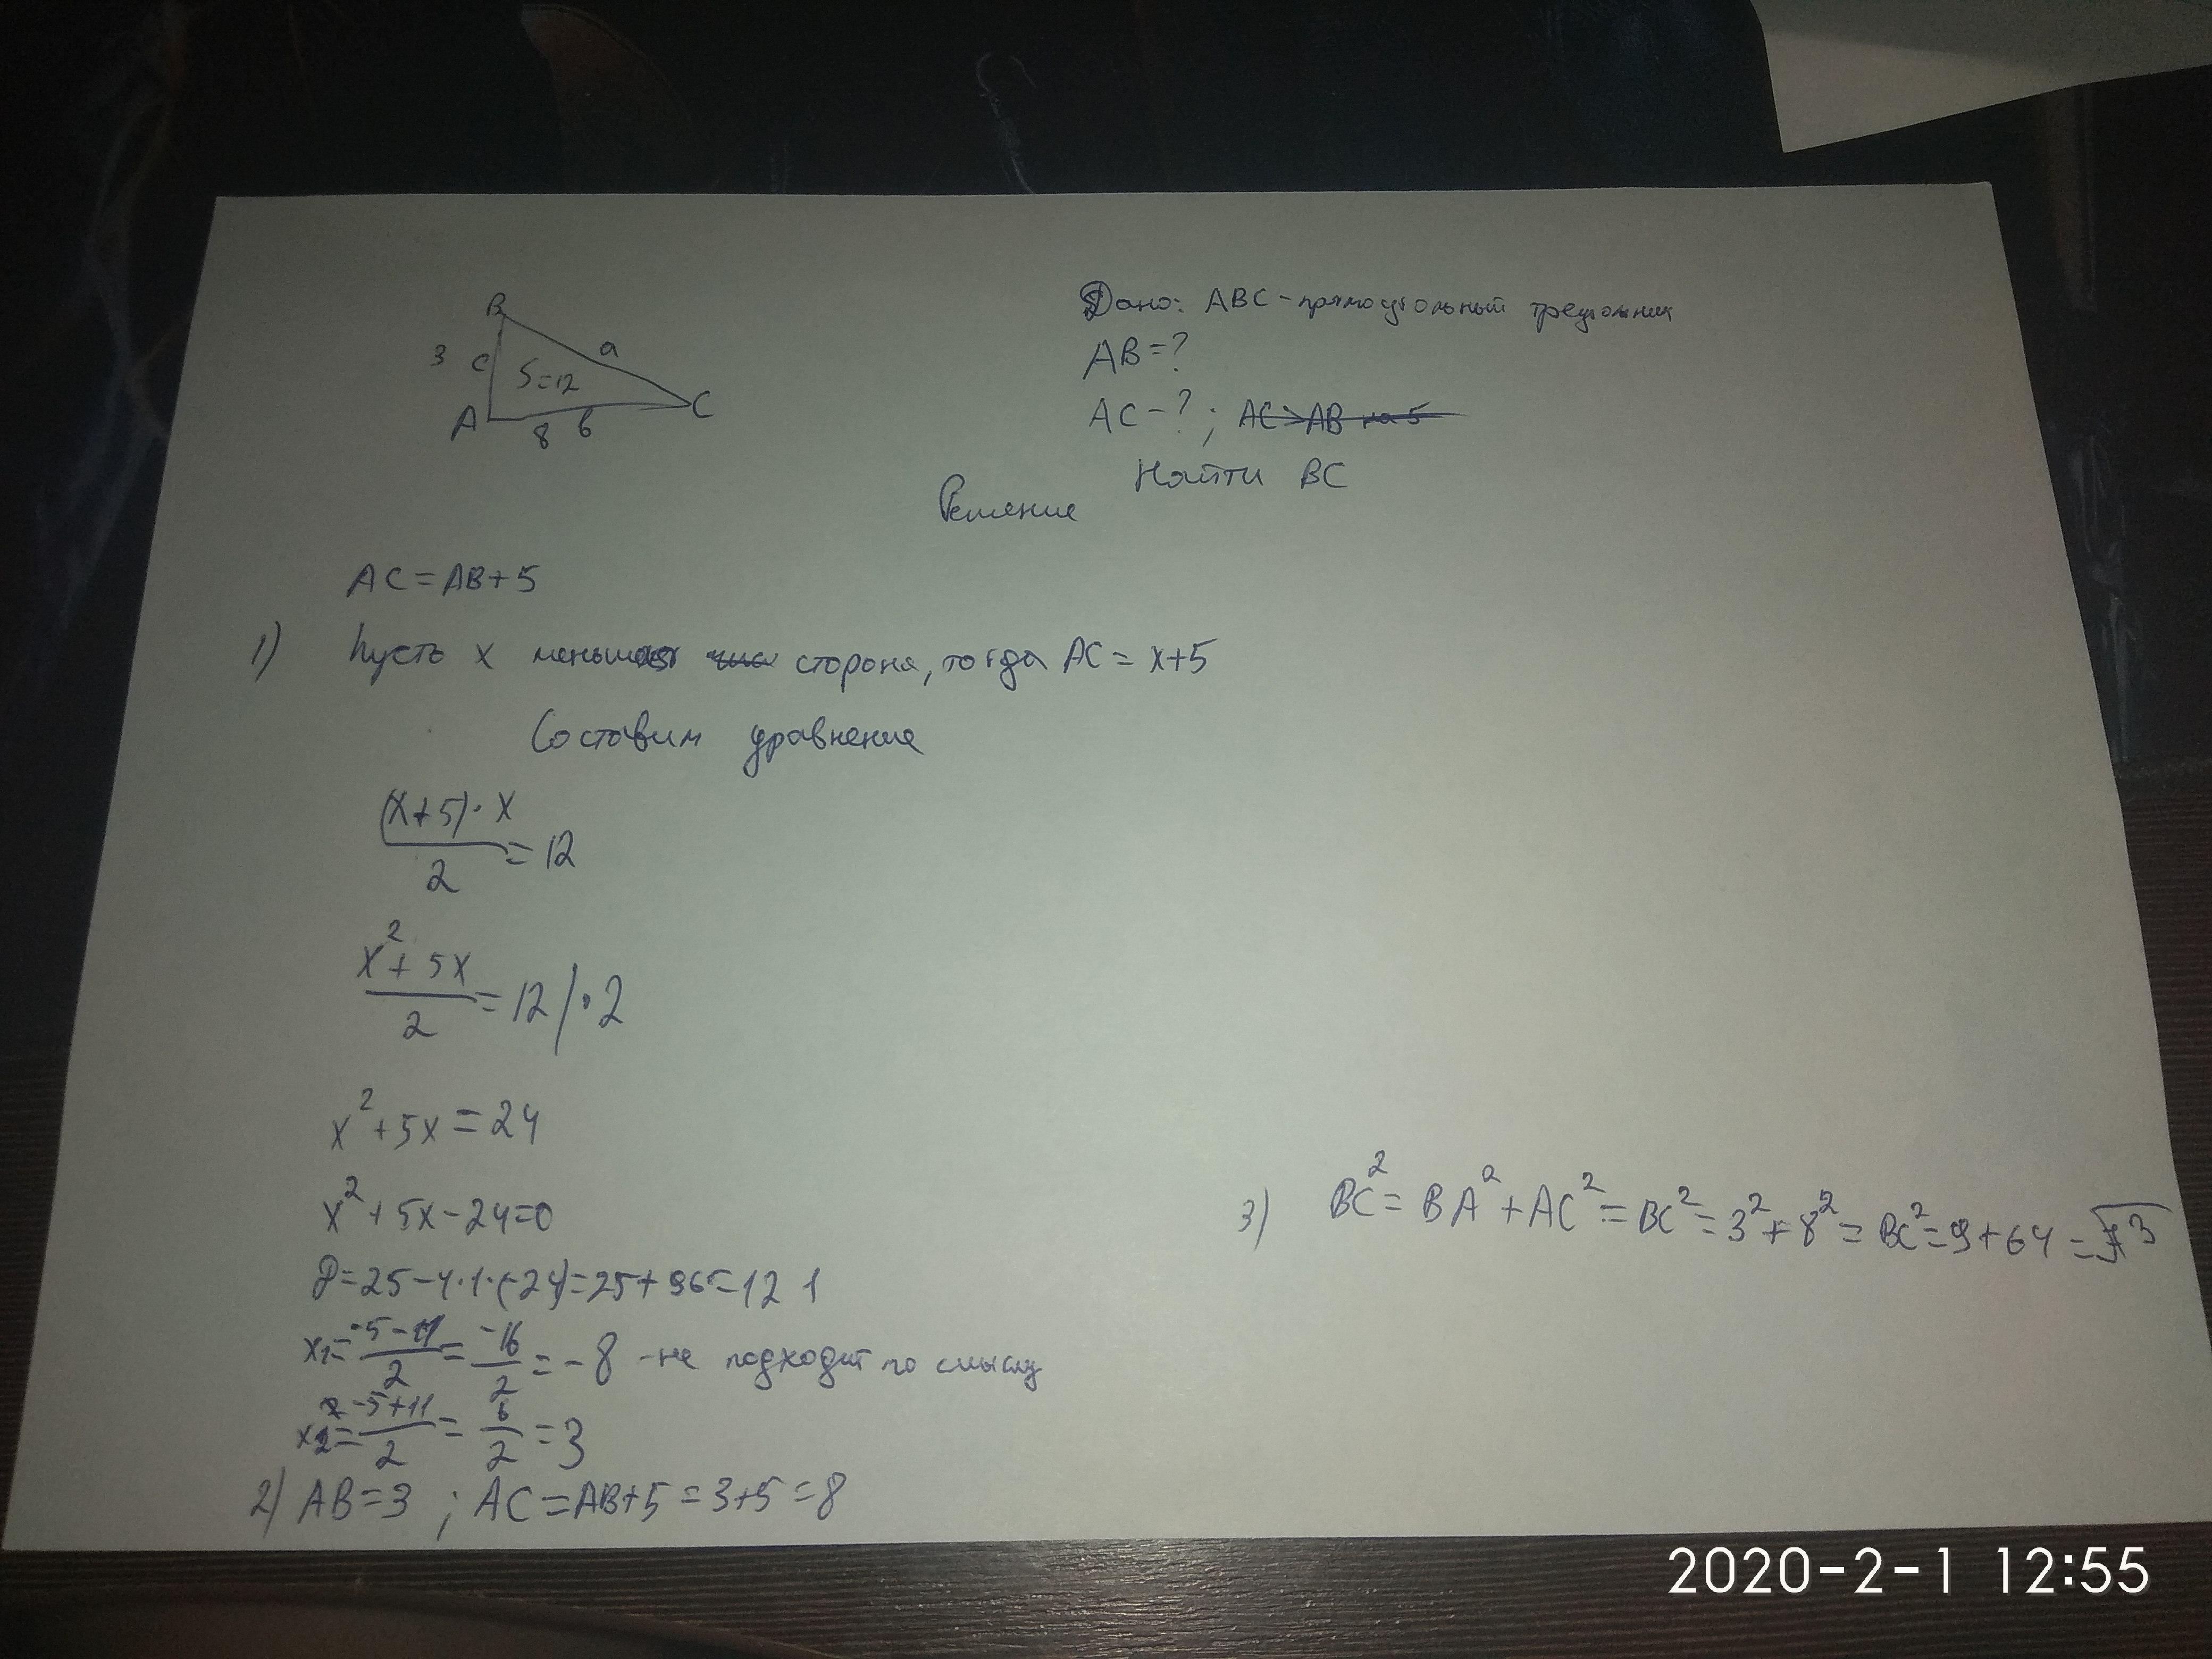 B
3 c a
S=12
A C
8 б
Дано: ABC - прямоугольный треугольник
AB=?
AC-?; AC>AB на 5
Найти BC
Решение
AC=AB+5
1) Пусть x меньшая сторона, тогда AC = x+5
Составим уравнение
(x+5)·x
2 = 12
x² + 5x
2 = 12 / · 2
x² + 5x = 24
x² + 5x - 24=0
D=25-4·1·(-24)=25+96=121
x1= -5-11/2 = -16/2 = -8 - не подходит по смыслу
x2= -5+11/2 = 6/2 = 3
2) AB=3 ; AC=AB+5=3+5=8
3) BC² = BA² + AC² = BC² = 3² + 8² = BC² = 9+64 = √73
2020-2-1 12:55